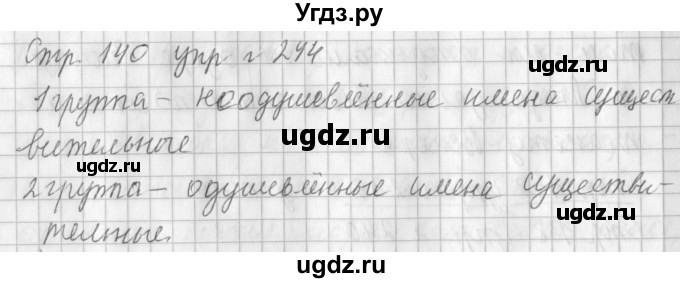 Угдз.ру
Стр. 140 упр г 244
ugdz.ru
1 группа – ноодушевлённые имена сущест
вительные
ugdz.ru
ugdz.ru
2 группа – одушевлённые имена существи-
ugdz.ru
тельные.
ugdz.ru